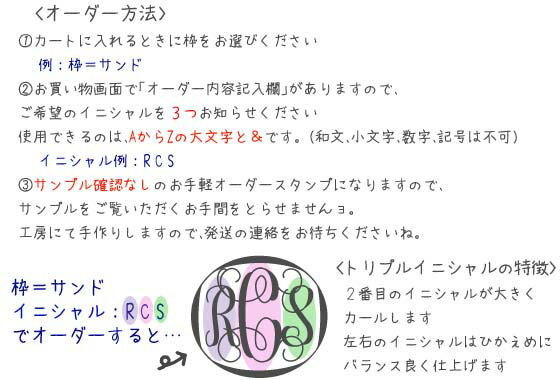 〈オーダー方法〉
①カートに入れるときに枠をお選びください
例：枠＝サンド
②お買い物画面で「オーダー内容記入欄」がありますので、
ご希望のイニシャルを３つお知らせください
使用できるのは、AからZの大文字と＆です。(和文、小文字、数字、記号は不可)
イニシャル例：RCS
③サンプル確認なしのお手軽オーダースタンプになりますので、
サンプルをご覧いただくお手間をとらせませんョ。
工房にて手作りしますので、発送の連絡をお待ちくださいね。
枠＝サンド
イニシャル：RCS
でオーダーすると…
RCS
〈トリプルイニシャルの特徴〉
２番目のイニシャルが大きく
カールします
左右のイニシャルはひかえめに
バランス良く仕上げます